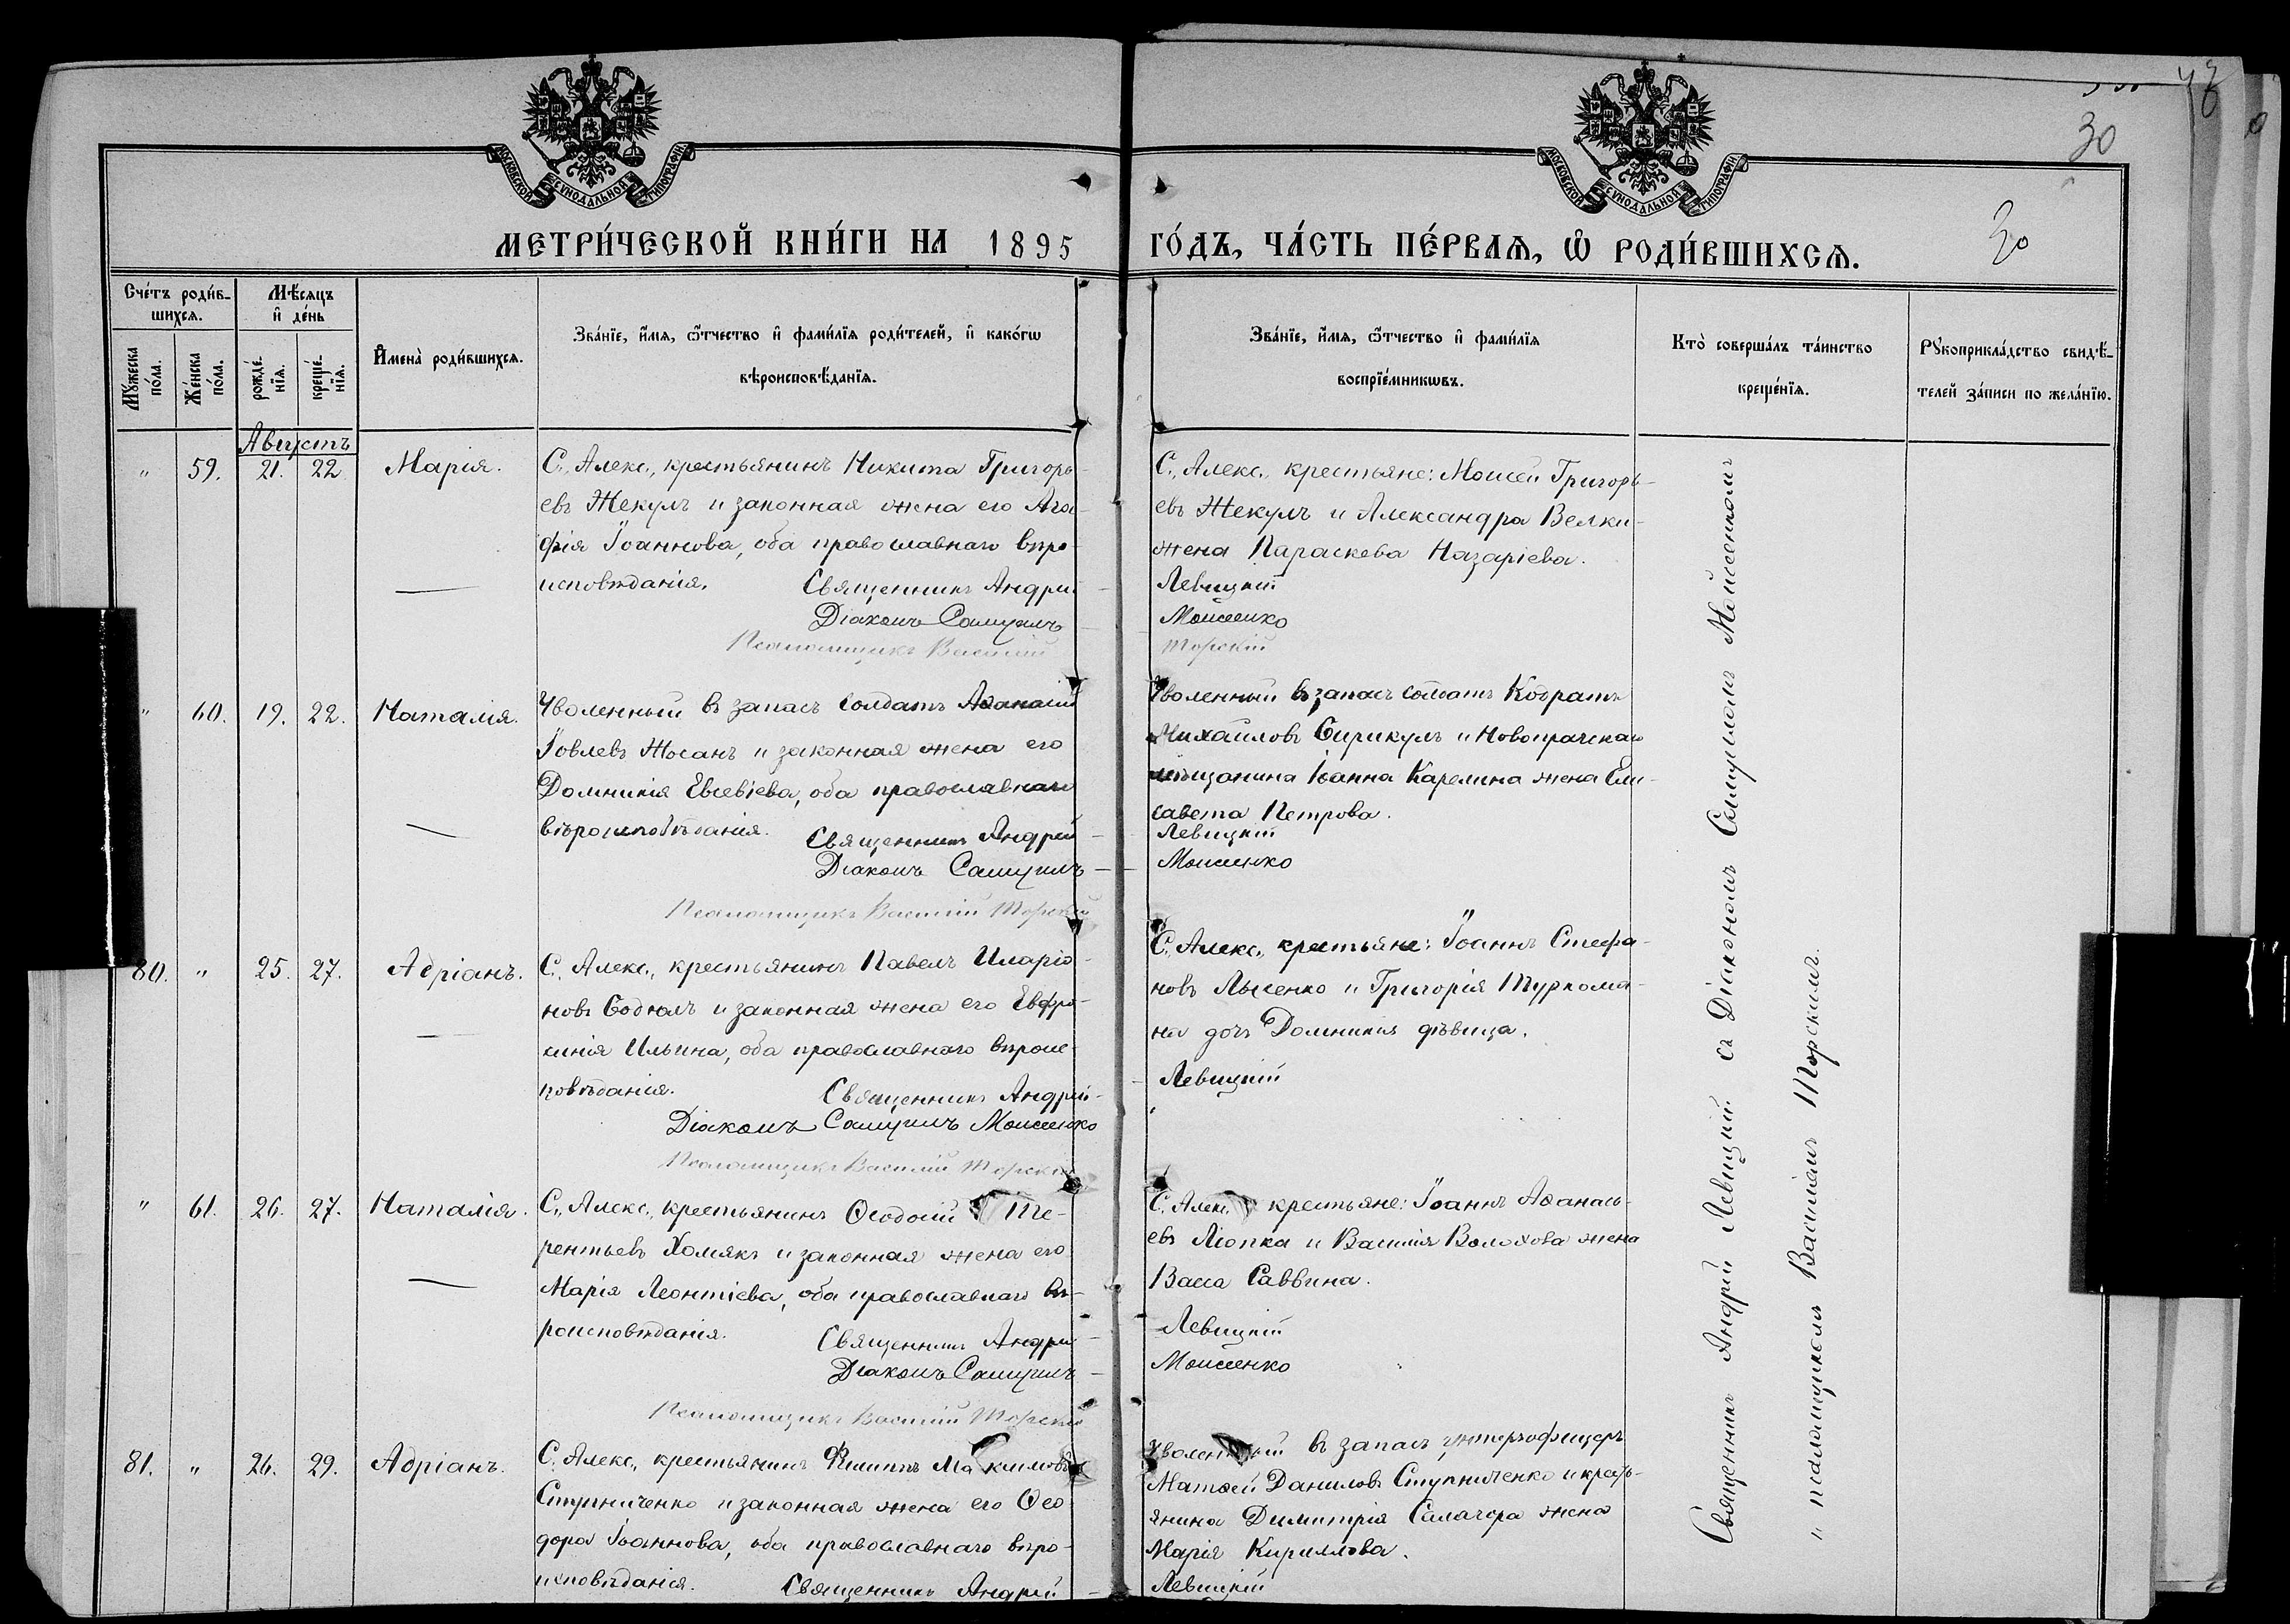 30
30
МОСКОВСКОЙ СѴНОДАЛЬНОЙ ТИПОГРАФІИ
МОСКОВСКОЙ СѴНОДАЛЬНОЙ ТИПОГРАФІИ
МЕТРИ́ЧЕСКОЙ КНИ́ГИ НА 1895 ГО́ДЪ, ЧА́СТЬ ПЕ́РВАѦ, Ѽ РОДИ́ВШИХСѦ.
Сче́тъ роди́в-
шихсѧ.
Мѣ́сѧцъ
и҆ де́нь
Мꙋ́жеска
по́ла.
Же́нска
по́ла.
рожде́-
нїѧ.
креще́-
нїѧ.
И҆мена̀ роди́вшихсѧ.
Зва́нїе, и҆́мѧ, ѻ҆́тчество и҆ фами́лїѧ роди́телей, и҆ како́гѡ
вѣроисповѣ́данїѧ.
Зва́нїе, и҆́мѧ, ѻ҆́тчество и҆ фами́лїѧ
воспрїе́мникѡвъ.
Кто̀ соверша́лъ та́инство
креще́нїѧ.
Рꙋкоприкла́дство свидѣ́-
телей за́писи по жела́нїю.
Августъ
„ 59. 21. 22 Марія.
С. Алекс., крестьянинъ Никита Григорь-
евъ Жекулъ и законная жена его Ага-
фія Іоаннова, оба православнаго вѣро-
исповѣданія. Священникъ Андрей
Діаконъ Самуилъ
Псаломщикъ Василій
С. Алекс. крестьяне: Моисей Григорь-
евъ Жекулъ и Александра Велки-
жена Параскева Назаріева.
Левицкій
Моисеенко
Торскій
„ 60. 19. 22. Наталія.
Уволенный въ запасъ солдатъ Аѳанасій
Іовлевъ Жосанъ и законная жена его
Домникія Евсевіева, оба православнаго
вѣроисповѣданія. Священникъ Андрей
Діаконъ Самуилъ
Псаломщикъ Василій Торскій
Уволенный въ запасъ солдатъ Кодратъ
Михайловъ Сирикулъ и Новопражскаго
мѣщанина Іоанна Карелина жена Ели-
савета Петрова.
Левицкій
Моисеенко
80. „ 25. 27. Адріанъ.
С. Алекс., крестьянинъ Павелъ Иларіо-
новъ Бодюлъ и законная жена его Евфро-
синія Ильина, оба православнаго вѣроис-
повѣданія. Священникъ Андрей
Діаконъ Самуилъ Моисеенко
Псаломщикъ Василій Торскій
С. Алекс., крестьяне: Іоаннъ Стефа-
новъ Лысенко и Григорія Туркома-
на дочь Домникія дѣвица.
Левицкій
„ 61. 26. 27. Наталія.
С. Алекс., крестьянинъ Ѳеодосій Те-
рентьевъ Хомякъ и законная жена его
Марія Леонтіева, оба православнаго вѣ-
роисповѣданія. Священникъ Андрей
Діаконъ Самуилъ
Псаломщикъ Василій Торскій
С. Алекс. крестьяне: Іоаннъ Аѳанась-
евъ Ліопка и Василія Волохова жена
Васса Саввина.
Левицкій
Моисеенко
81. „ 26. 29. Адріанъ.
С. Алекс., крестьянинъ Филиппъ Максимовъ
Ступниченко и законная жена его Ѳео-
дора Іоаннова, оба православнаго вѣро-
исповѣданія. Священникъ Андрей
Уволенный въ запасъ унтерофицеръ
Матѳей Даниловъ Ступниченко и кресть-
янина Димитрія Салагора жена
Марія Кириллова.
Левицкій
Священникъ Андрей Левицкій съ Діакономъ Самуиломъ Моисеенкомъ
„ псаломщикомъ Василіемъ Торскимъ.